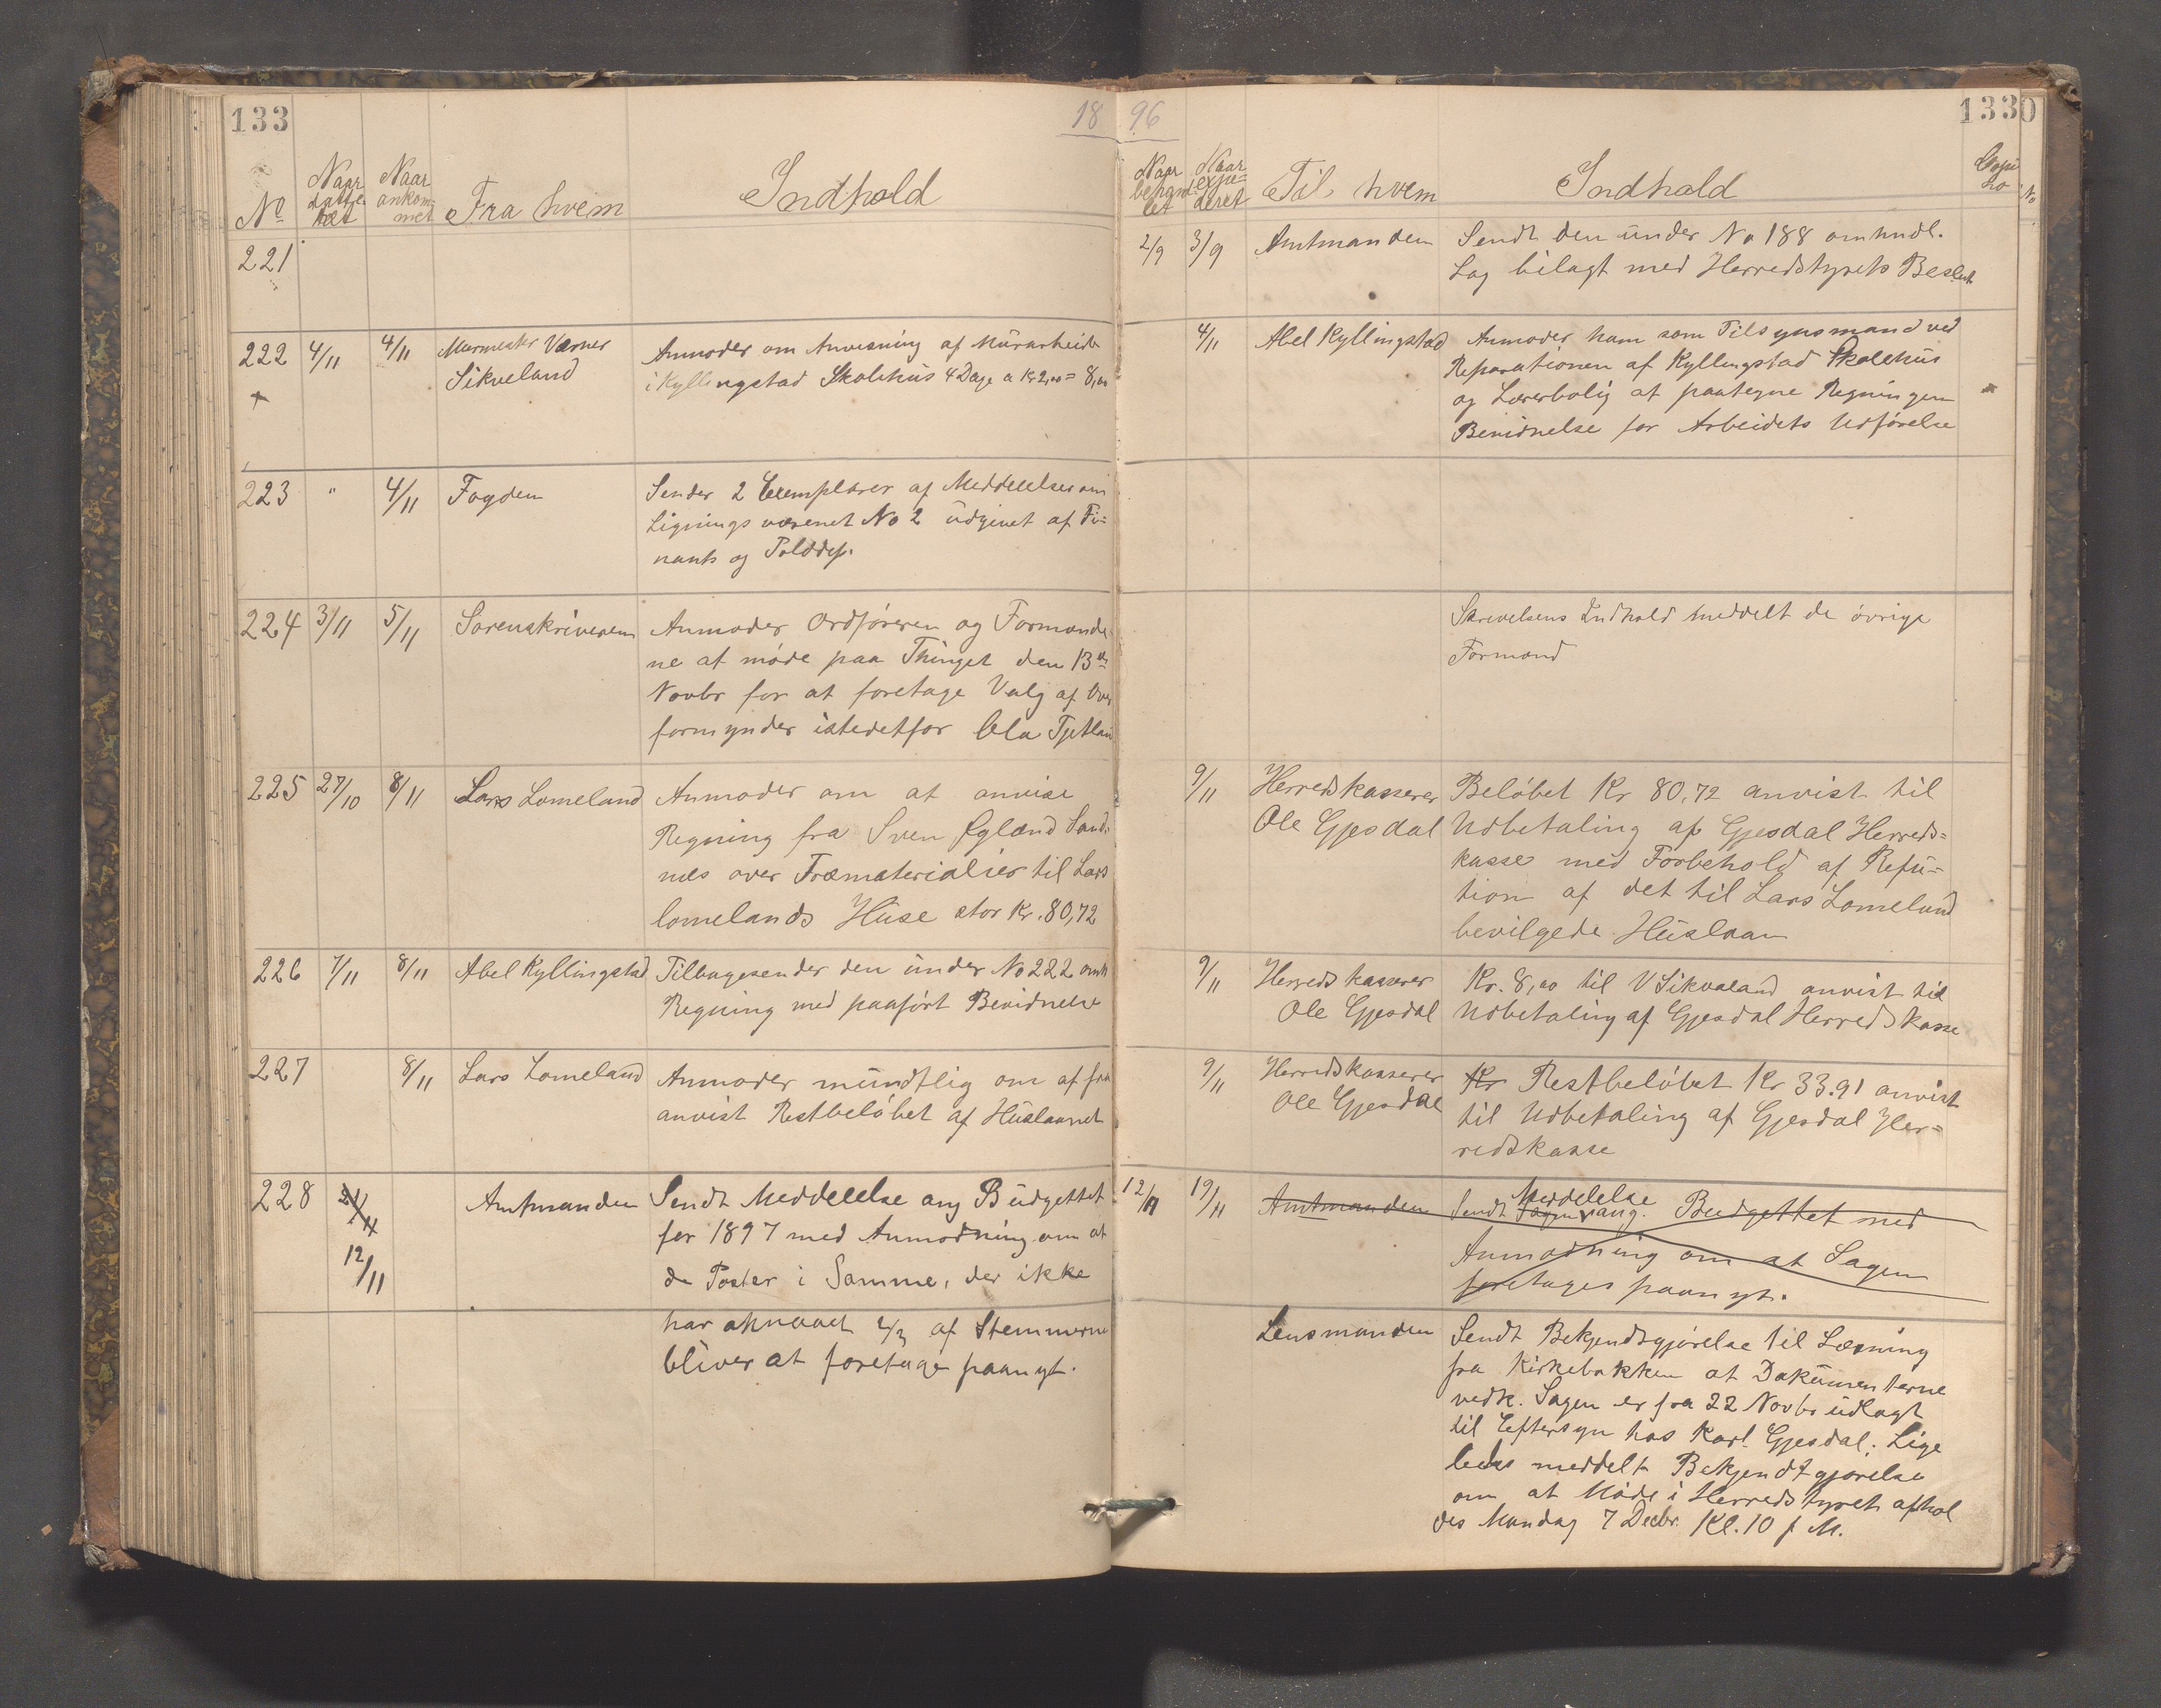 133
18 96
1330
No Naar datteret Naar ankommet Fra hvem Indhold
Naar behandlet Naar expederet Til hvem Indhold Copi No
No
221
2/9 3/9 Amtmanden Sendt den under No 188 omhndl.
Sag bilagt med Herredstyrets Beslut
222 4/11 4/11 Murmester Værner
Sikveland
Anmoder om Anvisning af Murarbeide
i Kyllingstad Skolehus 4 Dage a Kr 2,00 = 8,00
4/11 Abel Kyllingstad Anmoder ham som Tilsynsmand ved
Reparationen af Kyllingstad Skolehus
og Lærerbolig at paategne Regningen
Bevidnelse for Arbeidets Udførelse
223 " 4/11 Fogden
Sender 2 Exemplarer af Meddelelser om
Ligningsvæsenet No 2 udgivet af Fi=
nants og Tolddep.
224 3/11 5/11 Sorenskriveren
Anmoder Ordføreren og Formænde
ne at møde paa Thinget den 13de
Novbr for at foretage Valg af Over
formynder istedetfor Ola Tjetlan
Skrivelsens Indhold meddelt de øvrige
Formænd
225 27/10 8/11 Lars Lomeland
Anmoder om at anvise
Regning fra Sven Øgland Sand=
næs over Træmaterialier til Lars
Lomelands Huse stor Kr. 80,72
9/11 Herredskasserer
Ole Gjesdal
Beløbet Kr 80,72 anvist til
Udbetaling af Gjesdal Herreds=
kasse med Forbehold af Refu=
tion af det til Lars Lomeland
bevilgede Huslaan
226 7/11 8/11 Abel Kyllingstad
Tilbagesender den under No 222 omh
Regning med paaført Bevidnelse
9/11 Herredskasserer
Ole Gjesdal
Kr. 8,00 til V Sikvaland anvist til
Udbetaling af Gjesdal Herredskasse
227 8/11 Lars Lomeland
Anmoder mundtlig om at faa
anvist Restbeløbet af Huslaanet
9/11 Herredskasserer
Ole Gjesdal
Kr Restbeløbet Kr 33.91 anvist
til Udbetaling af Gjesdal Her=
redskasse
228 21/11
12/11
Amtmanden
Sendt Meddelelse ang Budgettet
for 1897 med Anmodning om at
de Poster i Samme, der ikke
har opnaaet 2/3 af Stemmerne
bliver at foretage paanyt.
12/11 19/11 Amtmanden
Meddelelse
Sendt Sagen ang. Budgettet med
Anmodning om at Sagen
foretages paanyt.
Lensmanden
Sendt Bekjendtgjørelse til Læsning
fra Kirkebakken at Dokumenterne
vedk. Sagen er fra 22 Novbr udlagt
til Eftersyn hos Karl Gjesdal; Lige
ledes meddelt Bekjendtgjørelse
om at Møde i Herredstyret afhol
des Mandag 7 Decbr. Kl. 10 f M.